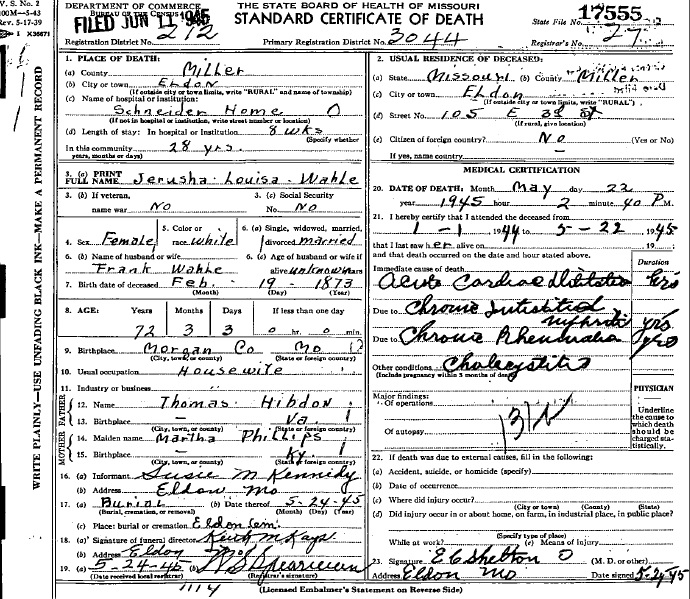 V. S. No. 2
100M—5-43
Rev. 5-17-39
I X36671
DEPARTMENT OF COMMERCE
BUREAU OF THE CENSUS
FILED JUN 11 1945
THE STATE BOARD OF HEALTH OF MISSOURI
STANDARD CERTIFICATE OF DEATH
State File No. 17555
Registration District No. 212
Primary Registration District No. 3044
Registrar's No. 27
WRITE PLAINLY—USE UNFADING BLACK INK—MAKE A PERMANENT RECORD
1. PLACE OF DEATH:
(a) County Miller
(b) City or town Eldon
(If outside city or town limits, write "RURAL" and name of township)
(c) Name of hospital or institution:
Schneider Home 0
(If not in hospital or institution, write street number or location)
(d) Length of stay: In hospital or institution 8 wks
(Specify whether
In this community 28 yrs.
years, months or days)
2. USUAL RESIDENCE OF DECEASED:
(a) State Missouri (b) County Miller
(c) City or town Eldon
(If outside city or town limits, write "RURAL")
(d) Street No. 105 E 3rd St
(If rural, give location)
(e) Citizen of foreign country? No (Yes or No)
If yes, name country —
3. (a) PRINT FULL NAME Jerusha Louisa Wahle
3. (b) If veteran, name war No
3. (c) Social Security No. No
4. Sex Female
5. Color or race White
6. (a) Single, widowed, married, divorced married
6. (b) Name of husband or wife Frank Wahle
6. (c) Age of husband or wife if alive unknown years
7. Birth date of deceased Feb. 19 - 1873
(Month) (Day) (Year)
8. AGE: Years Months Days If less than one day
72 3 3 0 hr. 0 min.
9. Birthplace Morgan Co Mo
(City, town, or county) (State or foreign country)
10. Usual occupation Housewife
11. Industry or business
FATHER
12. Name Thomas Hibdon
13. Birthplace — Va.
(City, town, or county) (State or foreign country)
MOTHER
14. Maiden name Martha Phillips
15. Birthplace — Ky.
(City, town, or county) (State or foreign country)
16. (a) Informant Susie M Kennedy
(b) Address Eldon Mo
17. (a) Burial (b) Date thereof 5-24-45
(Burial, cremation, or removal) (Month) (Day) (Year)
(c) Place: burial or cremation Eldon Cem.
18. (a) Signature of funeral director Keith M Kays
(b) Address Eldon Mo
19. (a) 5-24-45 (b)
(Date received local registrar) (Registrar's signature)
1114
MEDICAL CERTIFICATION
20. DATE OF DEATH: Month May day 22
year 1945 hour 2 minute 40 P.M.
21. I hereby certify that I attended the deceased from
1-1 1944 to 5-22 1945
that I last saw her alive on 19
and that death occurred on the date and hour stated above.
Duration
Immediate cause of death
Acute Cardiac Dilitation hrs
Due to Chronic Intistitial nephritis yrs
Due to Chronic Rheumatia yrs
Other conditions Cholecystitis
(Include pregnancy within 3 months of death)
PHYSICIAN
Major findings:
Of operations
Of autopsy
Underline the cause to which death should be charged statistically.
22. If death was due to external causes, fill in the following:
(a) Accident, suicide, or homicide (specify)
(b) Date of occurrence
(c) Where did injury occur?
(City or town) (County) (State)
(d) Did injury occur in or about home, on farm, in industrial place, in public place?
(Specify type of place)
While at work? (e) Means of injury
23. Signature E C Shelton 0 (M. D. or other)
Address Eldon Mo Date signed 5-24-45
(Licensed Embalmer's Statement on Reverse Side)